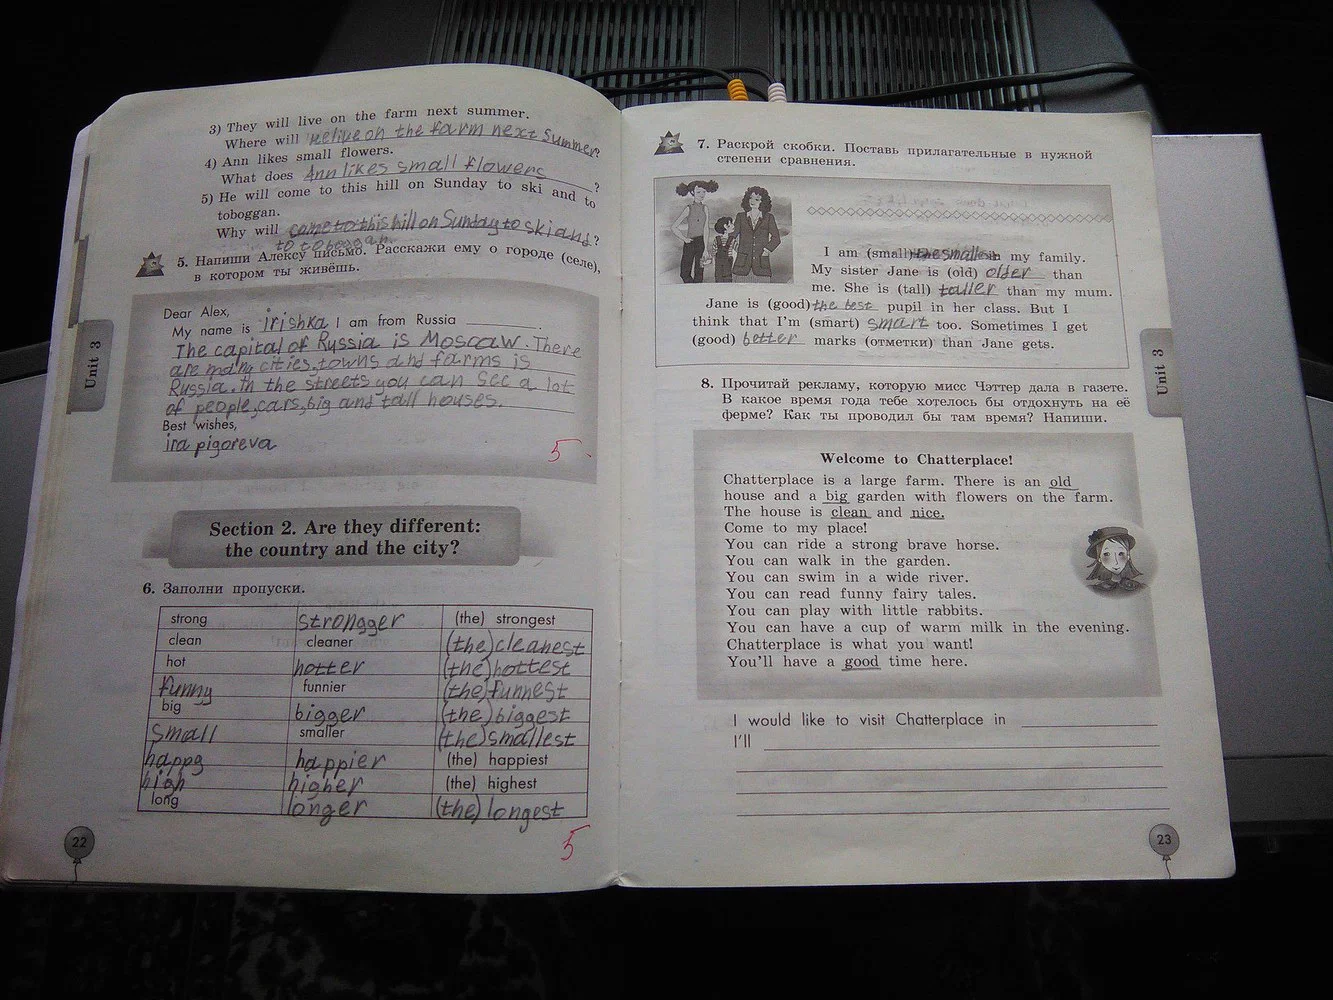 3) They will live on the farm next summer.
Where will we live on the farm next summer?
4) Ann likes small flowers.
What does Ann likes small flowers ?
5) He will come to this hill on Sunday to ski and to
toboggan.
Why will come to this hill on Sunday to ski and ?
to toboggan.
5. Напиши Алексу письмо. Расскажи ему о городе (селе),
в котором ты живёшь.
Dear Alex,
My name is irishka I am from Russia .
The capital of Russia is Moscaw. There
are many cities, towns and farms is
Russia. in the streets you can see a lot
of people, cars, big and tall houses.
Best wishes,
ira pigoreva
5.
Unit 3
Section 2. Are they different:
the country and the city?
6. Заполни пропуски.
strong strongger (the) strongest
clean cleaner (the) cleanest
hot hotter (the) hottest
funny funnier (the) funnest
big bigger (the) biggest
small smaller (the) smallest
happy happier (the) happiest
high higher (the) highest
long onger (the) longest
22
5
7. Раскрой скобки. Поставь прилагательные в нужной
степени сравнения.
I am (small) the smalles in my family.
My sister Jane is (old) older than
me. She is (tall) taller than my mum.
Jane is (good) the best pupil in her class. But I
think that I'm (smart) smart too. Sometimes I get
(good) better marks (отметки) than Jane gets.
8. Прочитай рекламу, которую мисс Чэттер дала в газете.
В какое время года тебе хотелось бы отдохнуть на её
ферме? Как ты проводил бы там время? Напиши.
Welcome to Chatterplace!
Chatterplace is a large farm. There is an old
house and a big garden with flowers on the farm.
The house is clean and nice.
Come to my place!
You can ride a strong brave horse.
You can walk in the garden.
You can swim in a wide river.
You can read funny fairy tales.
You can play with little rabbits.
You can have a cup of warm milk in the evening.
Chatterplace is what you want!
You'll have a good time here.
I would like to visit Chatterplace in
I'll
Unit 3
23